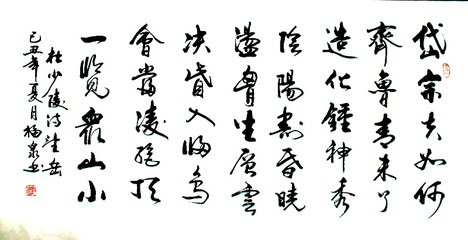 岱宗夫如何
齊魯青未了
造化鍾神秀
陰陽割昏曉
盪胷生層雲
决眥入歸鳥
會當凌絶頂
一覽眾山小
杜少陵詩望岳
己丑年夏月福泉书